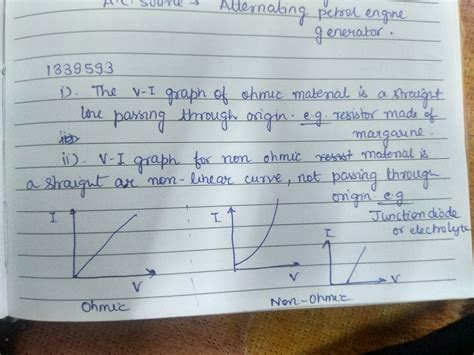 A.C. source → Alternating petrol engine
generator.
1339593
i). The V-I graph of ohmic material is a straight
line passing through origin. e.g. resistor made of
margarine.
ii). V-I graph for non ohmic material is
a straight or non-linear curve, not passing through
origin. e.g
Junction diode
or electrolyte
I
V
Ohmic
I
V
I
V
Non-Ohmic